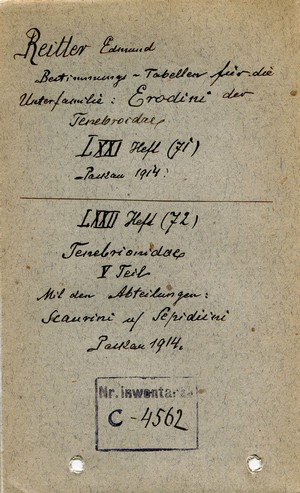 Reitter Edmund
Bestimmungs-Tabellen für die
Unterfamilie: Erodini der
Tenebroidae
LXXI Heft (71)
Paskau 1914.
LXXII Heft (72)
Tenebrionidae
V Teil
Mit den Abteilungen:
Scaurini u/ Sepidiini
Paskau 1914.
Nr. inwentarza
C-4562